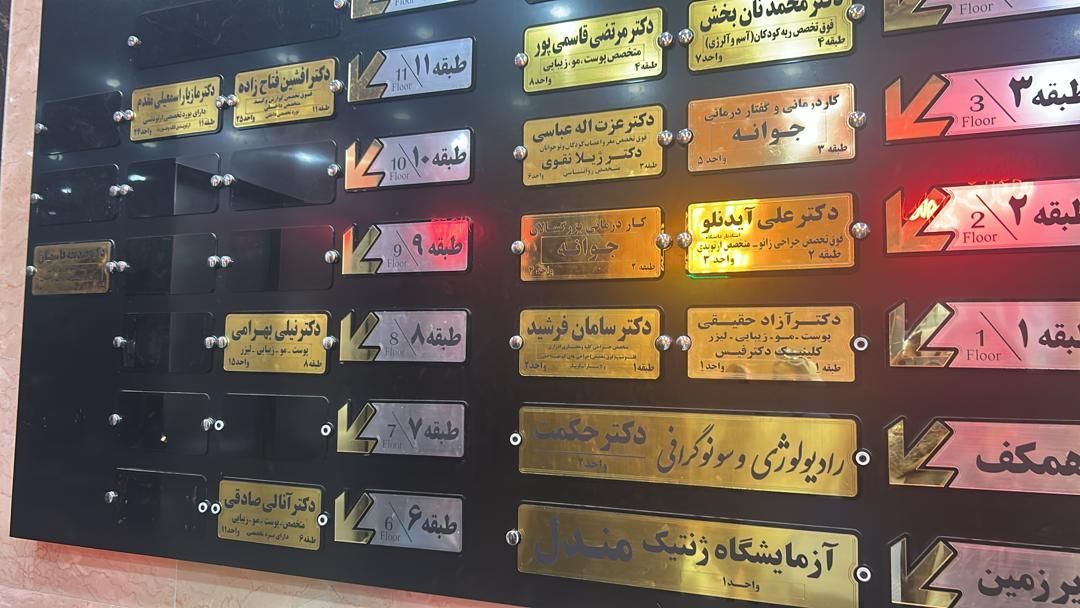 دکتر محمد نان بخش
فوق تخصص ریه کودکان (آسم و آلرژی)
طبقه ۴
واحد ۷
دکتر مرتضی قاسمی پور
متخصص پوست، مو، زیبایی
طبقه ۴
واحد ۸
Floor
Floor
طبقه ۳
3
Floor
کاردرمانی و گفتار درمانی
جـوانـه
طبقه ۳
واحد ۵
دکتر عزت اله عباسی
فوق تخصص مغز و اعصاب کودکان و نوجوانان
دکتر ژیلا نقوی
متخصص روانشناسی
طبقه ۳
واحد ۶
طبقه ۲
2
Floor
دکتر علی آیدنلو
فوق تخصص جراحی زانو - متخصص ارتوپدی
طبقه ۲
واحد ۳
کار درمانی بزرگسالان
جـوانـه
طبقه ۲
طبقه ۱
1
Floor
دکتـر آزاد حقیقـی
پوست - مو - زیبایی - لیزر
کلینیـک دکتر فیـس
طبقه ۱
واحد ۱
دکتر سامان فرشید
طبقه ۱
واحد ۲
همکف
رادیولوژی و سونوگرافی
دکتر حکمت
واحد ۲
زیرزمین
آزمایشگاه ژنتیک مندل
واحد ۱
طبقه ۱۱
11
Floor
دکتر افشین فتاح زاده
طبقه ۱۱
واحد ۲۵
دکتر مازیار اسمعیلی مقدم
دارای بورد تخصصی ارتوپدی
طبقه ۱۱
واحد ۲۴
طبقه ۱۰
10
Floor
طبقه ۹
9
Floor
طبقه ۸
8
Floor
دکتر نیلی بهرامی
پوست - مو - زیبایی - لیزر
طبقه ۸
واحد ۱۵
طبقه ۷
7
Floor
طبقه ۶
6
Floor
دکتر آنالی صادقی
متخصص - پوست - مو - زیبایی
دارای بورد تخصصی
طبقه ۶
واحد ۱۱